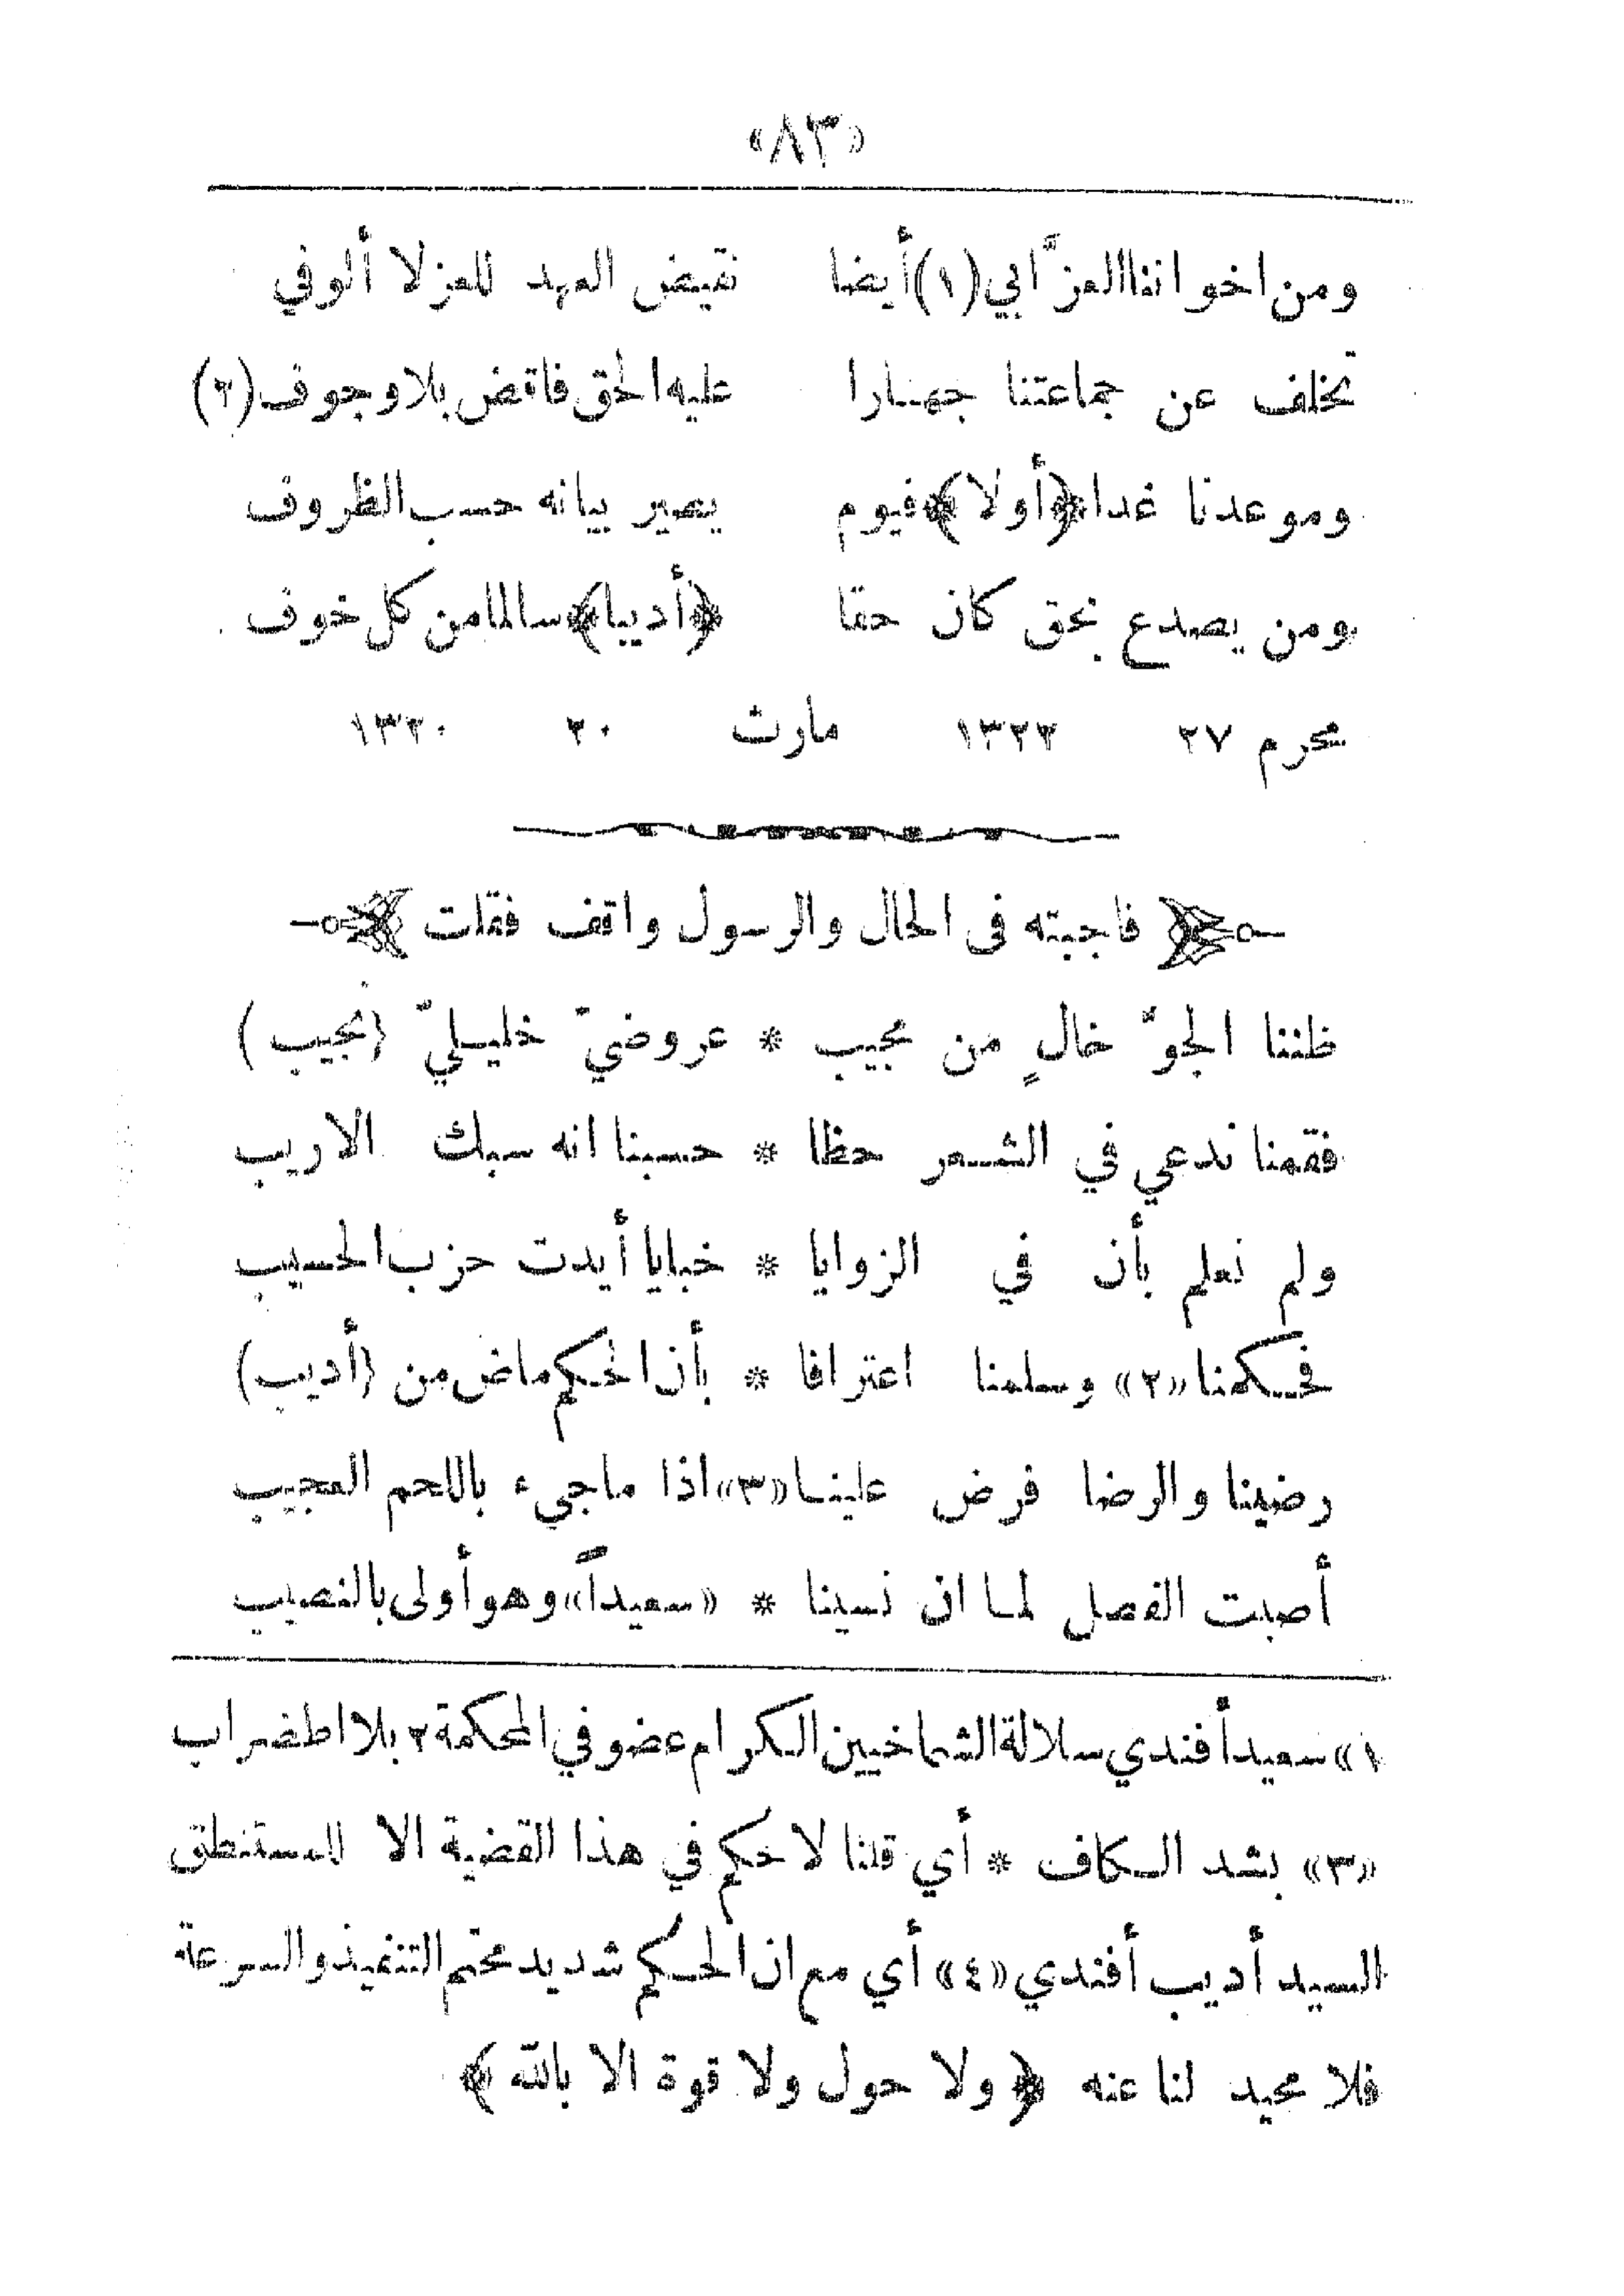 «٨٣»
ومن اخواننا العزَّابي (١) أيضا نقيض العهد للعزلا ألوفي
تخلف عن جماعتنا جهارا عليه الحق فاقض بلا وجوف (٢)
وموعدنا غدا ﴿أولا﴾ فيوم يصير بيانه حسب الظروف
ومن يصدع بحق كان حقا ﴿أديبا﴾ سالما من كل خوف
محرم ٢٧ ١٣٢٢ مارث ٢٠ ١٣٢٠
فاجبته في الحال والرسول واقف فقلت
ظننا الجوَّ خالٍ من مجيب * عروضيّ خليليّ (نجيب)
فقمنا ندعي في الشعر حظا * حسبنا انه سبك الاريب
ولم نعلم بأن في الزوايا * خبايا أيدت حزب الحسيب
فحكمنا «٢» وسلمنا اعترافا * بأن الحكم ماض من (أديب)
رضينا والرضا فرض علينا «٣» اذا ماجيء باللحم العجيب
أصبت الفصل لما ان نسينا * «سعيداً» وهو أولى بالنصيب
١» سعيد أفندي سلالة الشماخيين الكرام عضو في المحكمة ٢ بلا اضطراب
«٣» بشد الكاف * أي قلنا لا حكم في هذا القضية الا للمستنطق
السيد أديب أفندي «٤» أي مع ان الحكم شديد محتم التنفيذ والسرعة
فلا محيد لنا عنه ﴿ولا حول ولا قوة الا بالله﴾